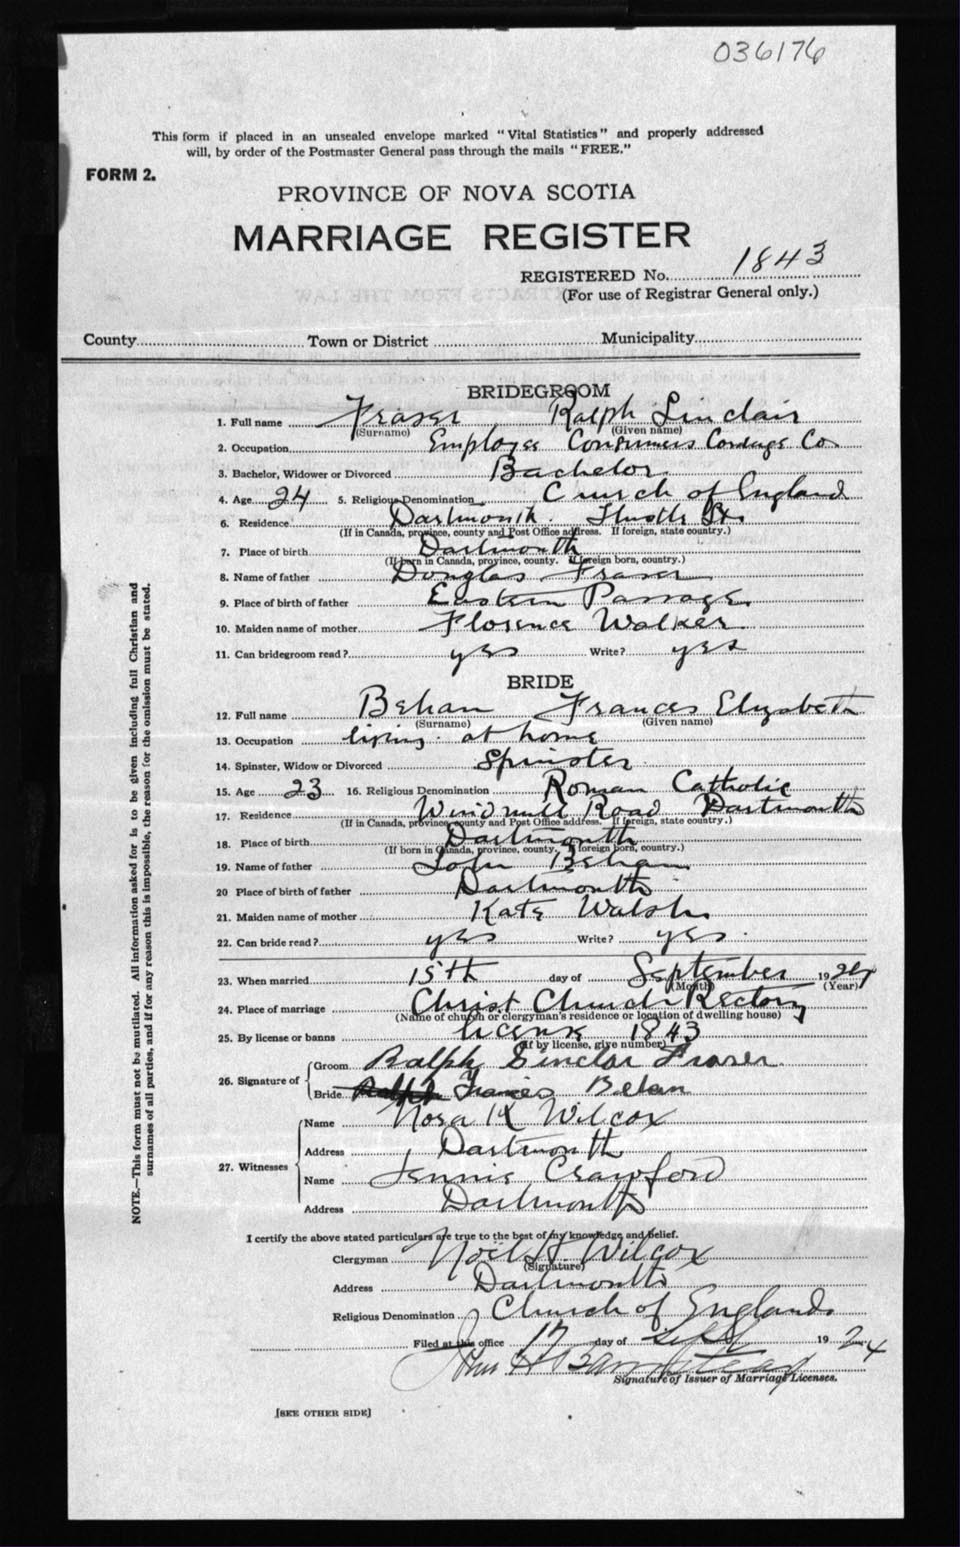 036176
This form if placed in an unsealed envelope marked "Vital Statistics" and properly addressed
will, by order of the Postmaster General pass through the mails "FREE."
FORM 2.
PROVINCE OF NOVA SCOTIA
MARRIAGE REGISTER
REGISTERED No. 1843
(For use of Registrar General only.)
County Town or District Municipality
BRIDEGROOM
1. Full name Fraser Ralph Sinclair
(Surname) (Given name)
2. Occupation Employee Consumers Cordage Co
3. Bachelor, Widower or Divorced Bachelor
4. Age 24 5. Religious Denomination Church of England
6. Residence Dartmouth. St.
(If in Canada, province, county and Post Office address. If foreign, state country.)
7. Place of birth Dartmouth
(If born in Canada, province, county. If foreign born, country.)
8. Name of father Douglas Fraser
9. Place of birth of father Eastern Passage
10. Maiden name of mother Florence Walker
11. Can bridegroom read? yes Write? yes
BRIDE
12. Full name Behan Frances Elizabeth
(Surname) (Given name)
13. Occupation living at home
14. Spinster, Widow or Divorced Spinster
15. Age 23 16. Religious Denomination Roman Catholic
17. Residence Windmill Road Dartmouth
(If in Canada, province, county and Post Office address. If foreign, state country.)
18. Place of birth Dartmouth
(If born in Canada, province, county. If foreign born, country.)
19. Name of father John Behan
20 Place of birth of father Dartmouth
21. Maiden name of mother Kate Walsh
22. Can bride read? yes Write? yes.
23. When married 15th day of September 1924
(Month) (Year)
24. Place of marriage Christ Church Rectory
(Name of church or clergyman's residence or location of dwelling house)
25. By license or banns license 1843
(If by license, give number)
26. Signature of
Groom Ralph Sinclair Fraser
Bride Ralph Frances Behan
27. Witnesses
Name Nora K Wilcox
Address Dartmouth
Name Jennie Crawford
Address Dartmouth
I certify the above stated particulars are true to the best of my knowledge and belief.
Clergyman Noel H Wilcox
(Signature)
Address Dartmouth
Religious Denomination Church of England
Filed at this office 17 day of Sept 1924
John H Barnstead
Signature of Issuer of Marriage Licenses.
[SEE OTHER SIDE]
NOTE.—This form must not be mutilated. All information asked for is to be given including full Christian and
surnames of all parties, and if for any reason this is impossible, the reason for the omission must be stated.